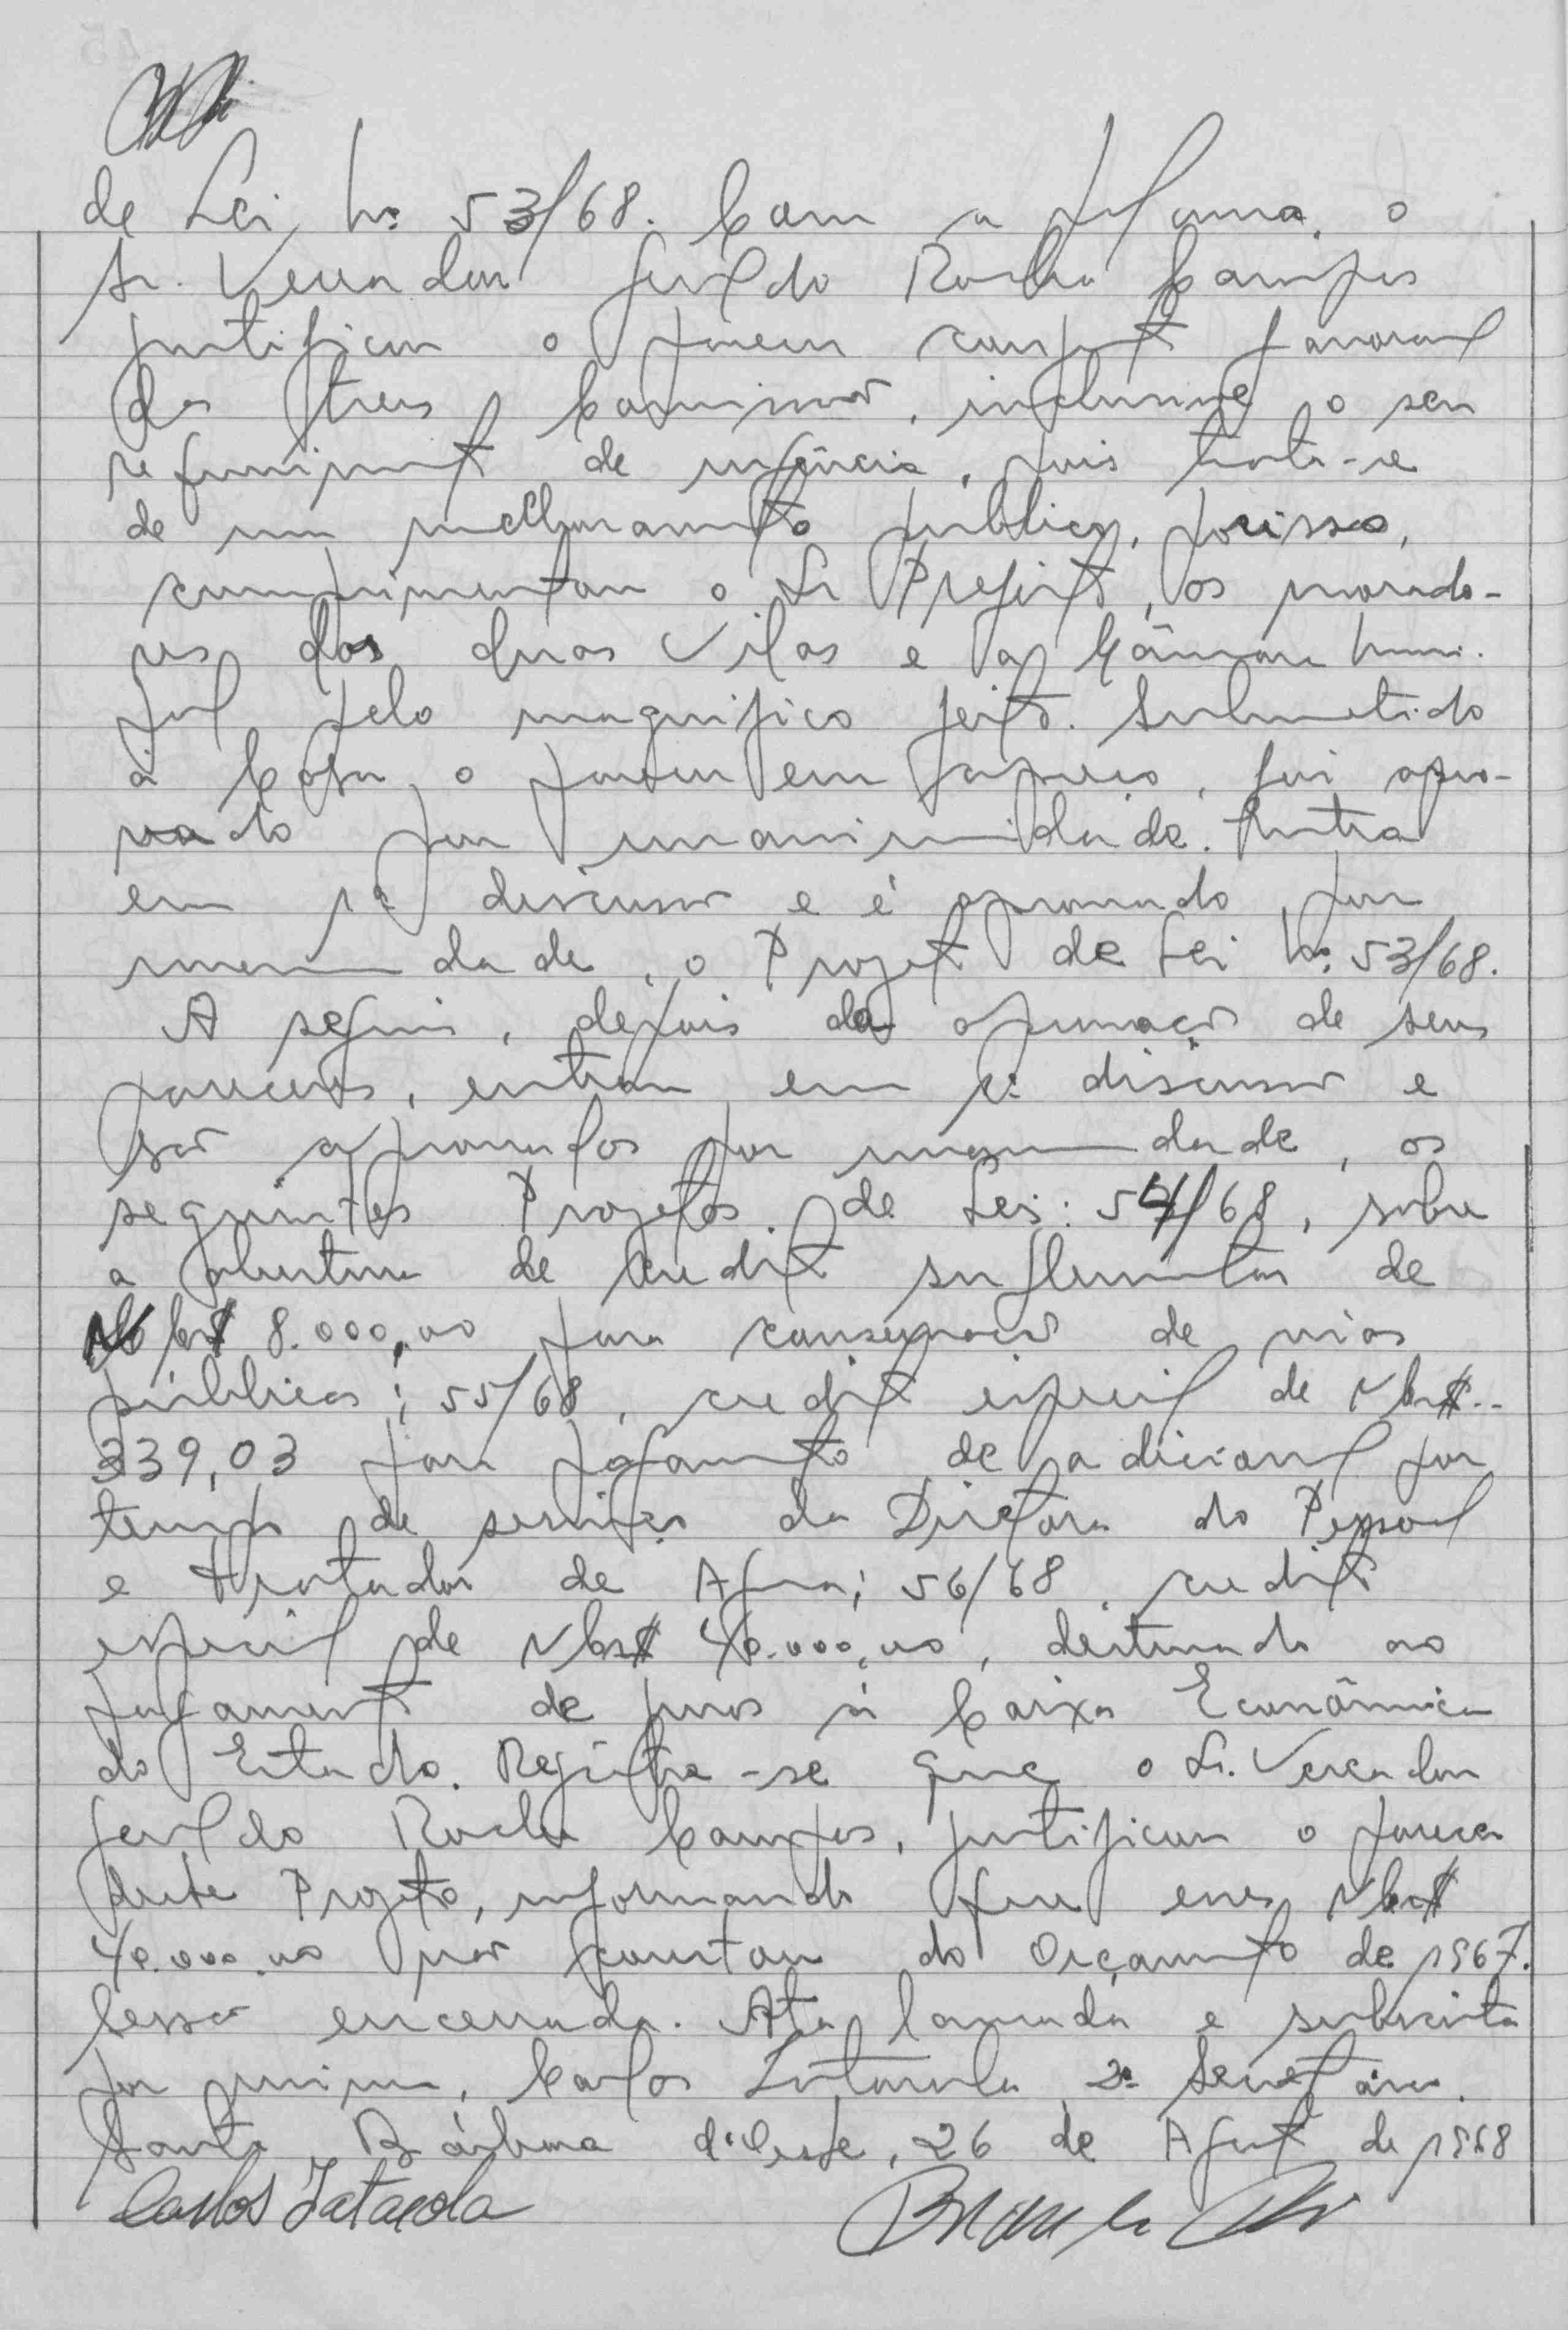 de Lei nº 53/68. Com a palavra, o
Sr. Vereador Geraldo Rocha Campos
justificou o parecer conjunto favoravel
das tres Comissões, inclusive o seu
requerimento de urgência, pois trata-se
de um melhoramento público, porisso,
cumprimentou o Sr Prefeito, os morado-
res das duas Vilas e a Câmara Muni-
pal pelo magnifico feito. Submetido
à Casa o parecer em apreço, foi apro-
vado por unanimidade. Entra
em 1ª discussão e é aprovado por
unanimidade, o Projeto de Lei nº 53/68.
A seguir, depois da aprovação de seus
pareceres, entram em 1ª discussão e
são aprovados por unanimidade, os
seguintes Projetos de Leis: 54/68, sobre
a abertura de credito suplementar de
NCr$ 8.000,00 para conservação de vias
públicas; 55/68, credito especial de NCr$..
339,03 para pagamento de adicional por
tempo de serviço da Diretora do Pessoal
e Tratador de Agua; 56/68, credito
especial de NCr$ 40.000,00, destinado ao
pagamento de juros à Caixa Econômica
do Estado. Registra-se que o Sr. Vereador
Geraldo Rocha Campos, justificou o parecer
deste Projeto, informando que esses NCr$
40.000,00 não constou do Orçamento de 1967.
Sessão encerrada. Ata lavrada e subscrita
por mim, Carlos Zatarola 2º Secretário.
Santa Bárbara d'Oeste, 26 de Agosto de 1968
Carlos Zatarola